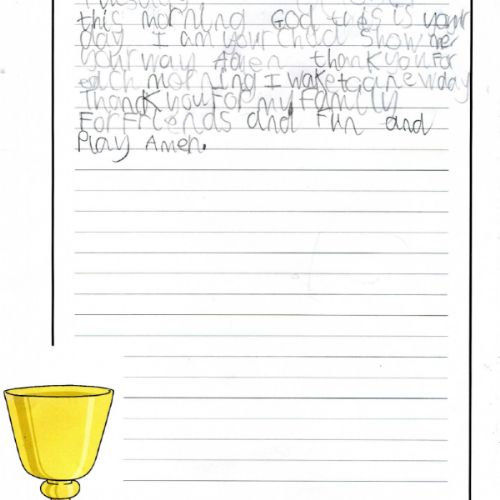 this morning God this is your
day I am your child show me
your way Amen thank you For
each morning I wake to a new day
Thank you For my Family
For Friends and Fun and
Play Amen.